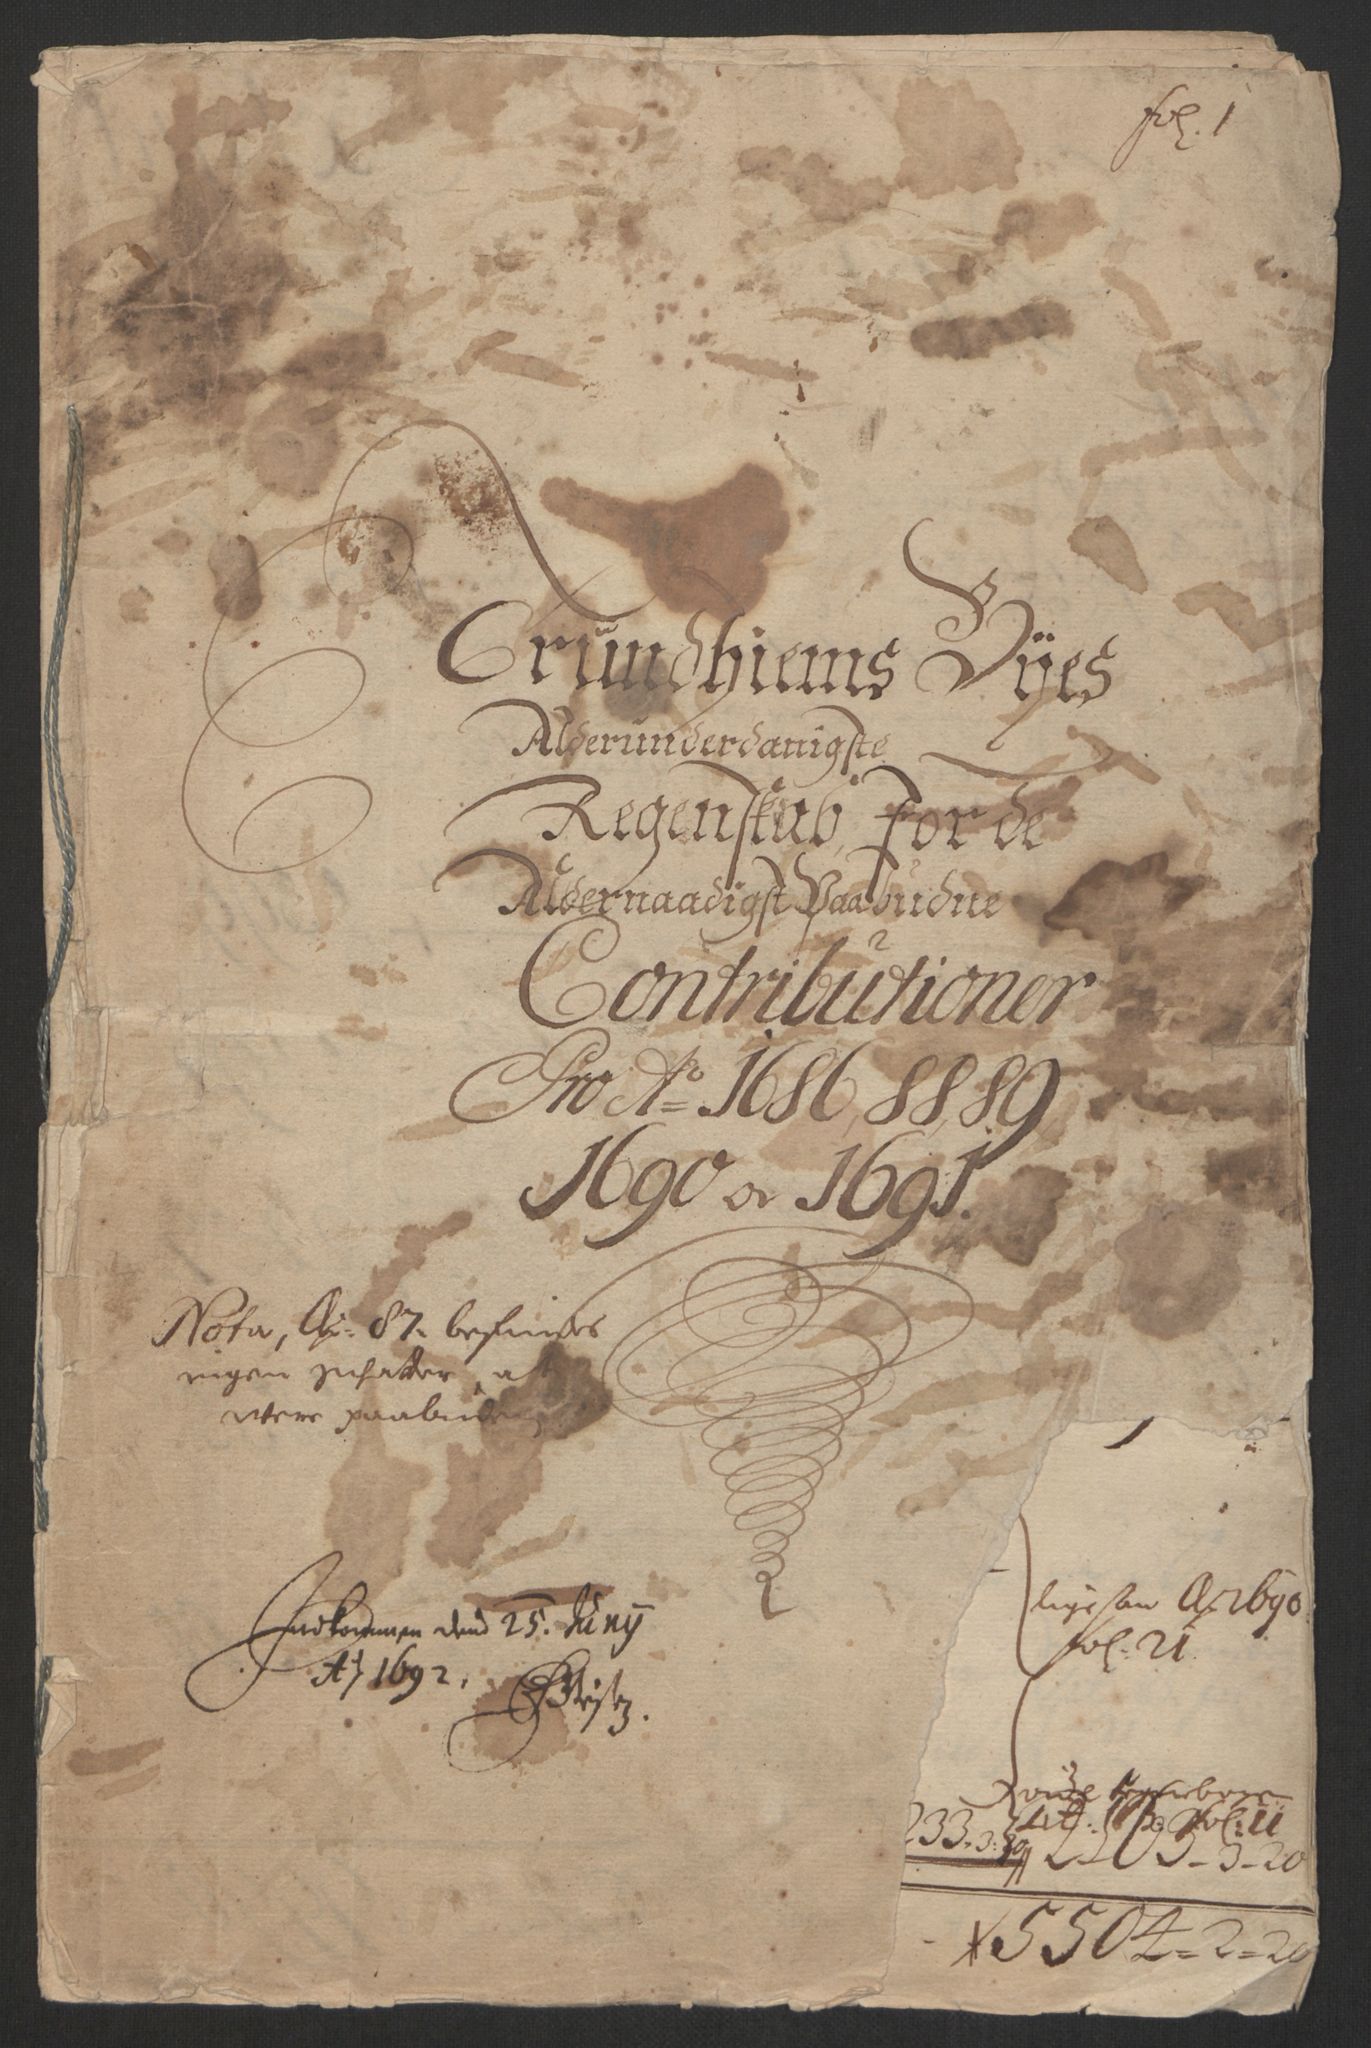 fol. 1
Trundhiems Byes
Alderunderdanigste
Regenskab, for de
Aldernaadigst Paabudne
Contributioner
Pro Ao 1686, 88, 89,
1690 oc 1691.
Nota, Ao 87. befindes
ingen schatter at
were paabuden
Indkommen dend 25. Juny
Ao 1692.
Ao 1690
fol. 21
fol. 11
233.3:
2303-3-20
5504=2=20